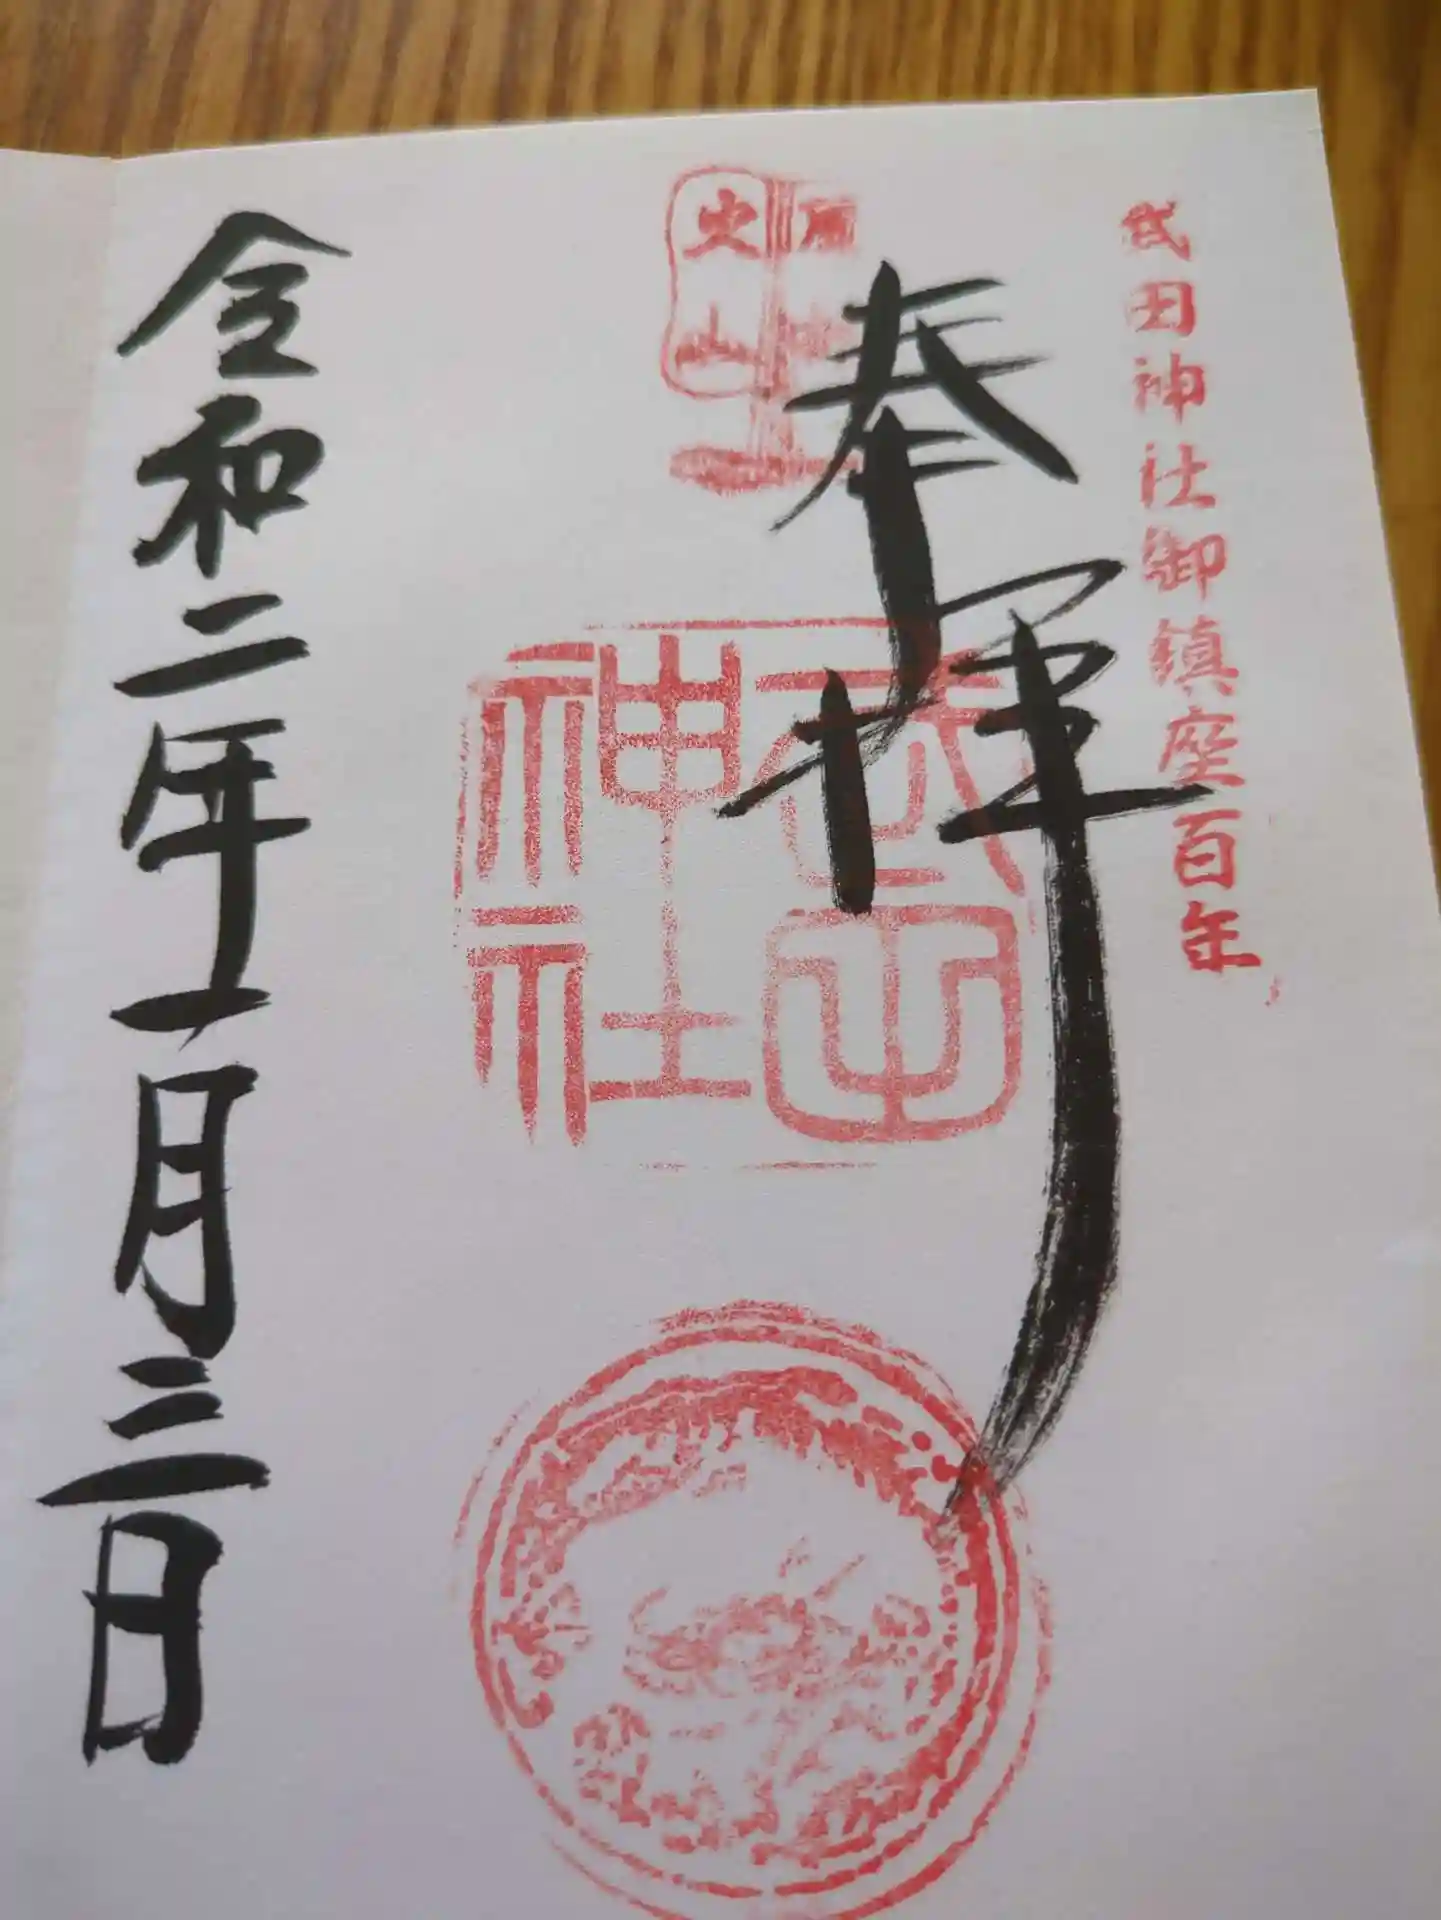 武田神社御鎮座百年
奉拝
火
山
武田
神社
令和二年一月三日